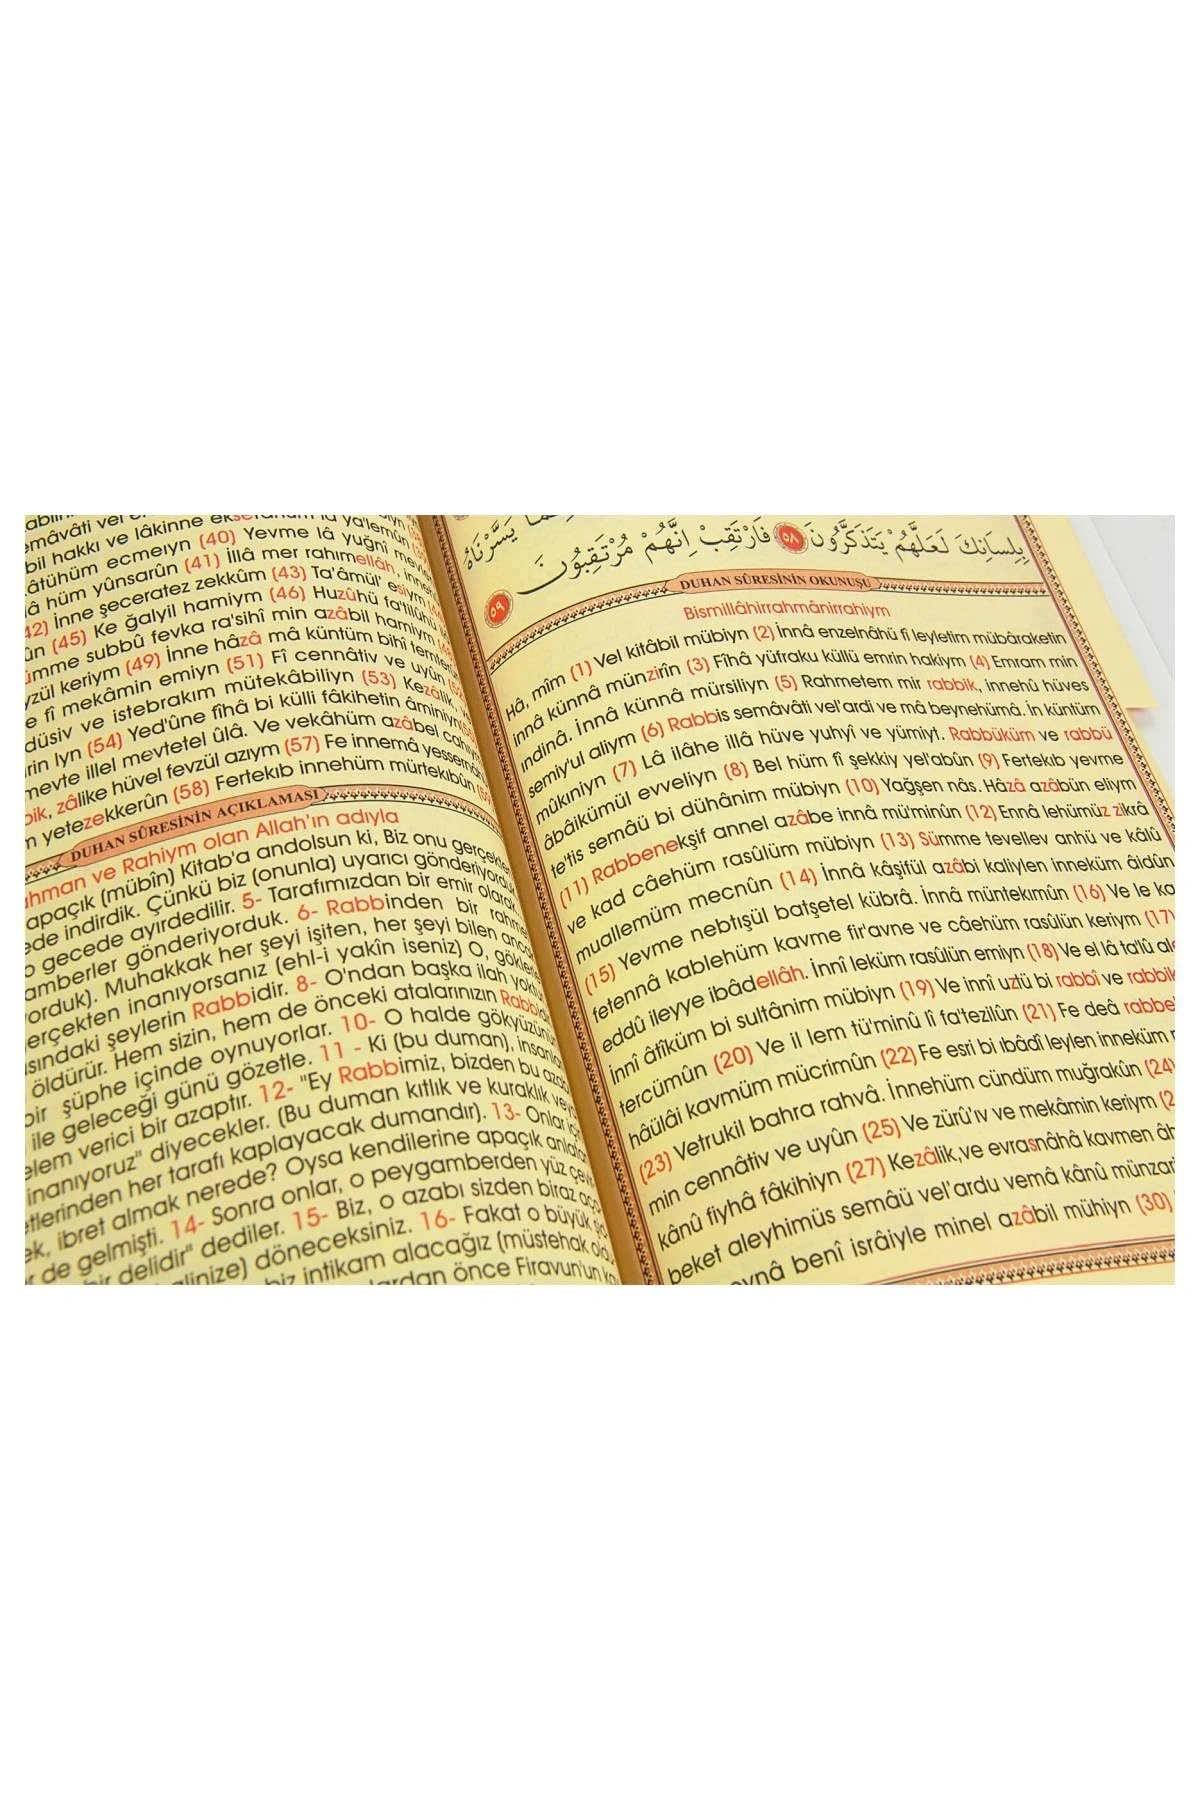 bil hakkı ve lâkinne
hüm ecmeıyn (40) Yevme lâ yuğnî
hüm yûnsarûn (41) İllâ mer rahımellâh, innehû
42) İnne şeceratez zekkûm (43) Ta'âmül' esiym
(45) Ke ğalyil hamiym (46) Huzûhü fa'tilûhü
subbû fevka ra'sihî min azâbil hamiym
keriym (49) İnne hâzâ mâ küntüm bihî temterûn
fî mekâmin emiyn (51) Fî cennâtiv ve uyûn
ve istebrakım mütekâbiliyn (53) Kezâlik,
(54) Yed'ûne fîhâ bi külli fâkihetin âminiyn
mevte illel mevtetel ûlâ. Ve vekâhüm azâbel cahıym
zâlike hüvel fevzül azıym (57) Fe innemâ yessernâhü
yetezekkerûn (58) Fertekıb innehüm mürtekıbûn (59)
DUHAN SÛRESİNİN AÇIKLAMASI
ve Rahiym olan Allah'ın adıyla
apaçık (mübîn) Kitab'a andolsun ki, Biz onu gerçekten
indirdik. Çünkü biz (onunla) uyarıcı gönderiyorduk
gecede ayırdedilir. 5- Tarafımızdan bir emir olarak
gönderiyorduk. 6- Rabbinden bir rahmet
Muhakkak her şeyi işiten, her şeyi bilen ancak
gerçekten inanıyorsanız (ehl-i yakîn iseniz) O, göklerle
şeylerin Rabbidir. 8- O'ndan başka ilah yoktur
öldürür. Hem sizin, hem de önceki atalarınızın Rabbidir
bir şüphe içinde oynuyorlar. 10- O halde gökyüzünün
ile geleceği günü gözetle. 11 - Ki (bu duman), insanları
elem verici bir azaptır. 12- "Ey Rabbimiz, bizden bu azabı
inanıyoruz" diyecekler. (Bu duman kıtlık ve kuraklık
her tarafı kaplayacak dumandır). 13- Onlar için
ibret almak nerede? Oysa kendilerine apaçık anlatan
de gelmişti. 14- Sonra onlar, o peygamberden yüz
bir delidir" dediler. 15- Biz, o azabı sizden biraz
döneceksiniz. 16- Fakat o büyük
biz intikam alacağız (müstehak
önce Firavun'un
يَسَّرْنَاهُ
بِلِسَانِكَ لَعَلَّهُمْ يَتَذَكَّرُونَ ٥٨ فَارْتَقِبْ اِنَّهُمْ مُرْتَقِبُونَ ٥٩
DUHAN SÛRESİNİN OKUNUŞU
Bismillâhirrahmânirrahiym
Hâ, mîm (1) Vel kitâbil mübiyn (2) İnnâ enzelnâhü fî leyletim mübâraketin
innâ künnâ münzirîn (3) Fîhâ yüfraku küllü emrin hakiym (4) Emram min
indinâ. İnnâ künnâ mürsiliyn (5) Rahmetem mir rabbik, innehû hüves
semiy'ul aliym (6) Rabbis semâvâti vel'ardi ve mâ beynehümâ. İn küntüm
mûkıniyn (7) Lâ ilâhe illâ hüve yuhyî ve yümiyt. Rabbüküm ve rabbü
âbâikümül evveliyn (8) Bel hüm fî şekkiy yel'abûn (9) Fertekıb yevme
te'tis semâü bi dühânim mübiyn (10) Yağşen nâs. Hâzâ azâbün eliym
(11) Rabbenekşif annel azâbe innâ mü'minûn (12) Ennâ lehümüz zikrâ
ve kad câehüm rasûlüm mübiyn (13) Sümme tevellev anhü ve kâlû
muallemüm mecnûn (14) İnnâ kâşifül azâbi kaliylen inneküm âidûn
(15) Yevme nebtışül batşetel kübrâ. İnnâ müntekımûn (16) Ve le ka
fetennâ kablehüm kavme fir'avne ve câehüm rasûlün keriym (17)
eddû ileyye ibâdellâh. İnnî leküm rasûlün emiyn (18) Ve el lâ ta'lû
İnnî âtîküm bi sultânim mübiyn (19) Ve innî uztü bi rabbî ve rabbik
tercümûn (20) Ve il lem tü'minû lî fa'tezilûn (21) Fe deâ rabbe
hâülâi kavmüm mücrimûn (22) Fe esri bi ıbâdî leylen inneküm
(23) Vetrukil bahra rahvâ. İnnehüm cündüm muğrakûn (24)
min cennâtiv ve uyûn (25) Ve zürû'ıv ve mekâmin keriym
kânû fiyhâ fâkihiyn (27) Kezâlik,ve evrasnâhâ kavmen
beket aleyhimüs semâü vel'ardu vemâ kânû münzar
benî isrâiyle minel azâbil mühiyn (30)